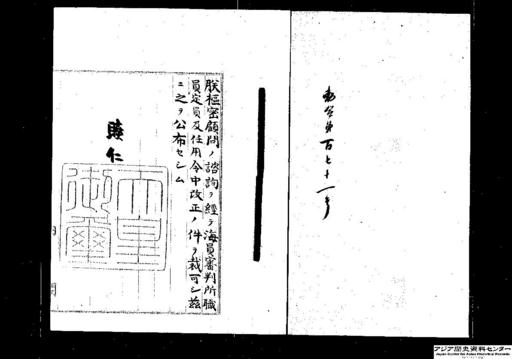 勅令第百七十一号
朕枢密顧問ノ諮詢ヲ経テ海員審判所職
員定員及任用令中改正ノ件ヲ裁可シ茲
ニ之ヲ公布セシム
睦仁
天皇
御璽
アジア歴史資料センター
Japan Center for Asian Historical Records